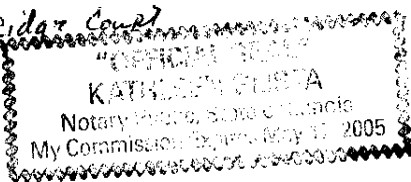 Court
"OFFICIAL SEAL"
KATHLEEN
Notary Public, State of Illinois
My Commission Expires May 2005